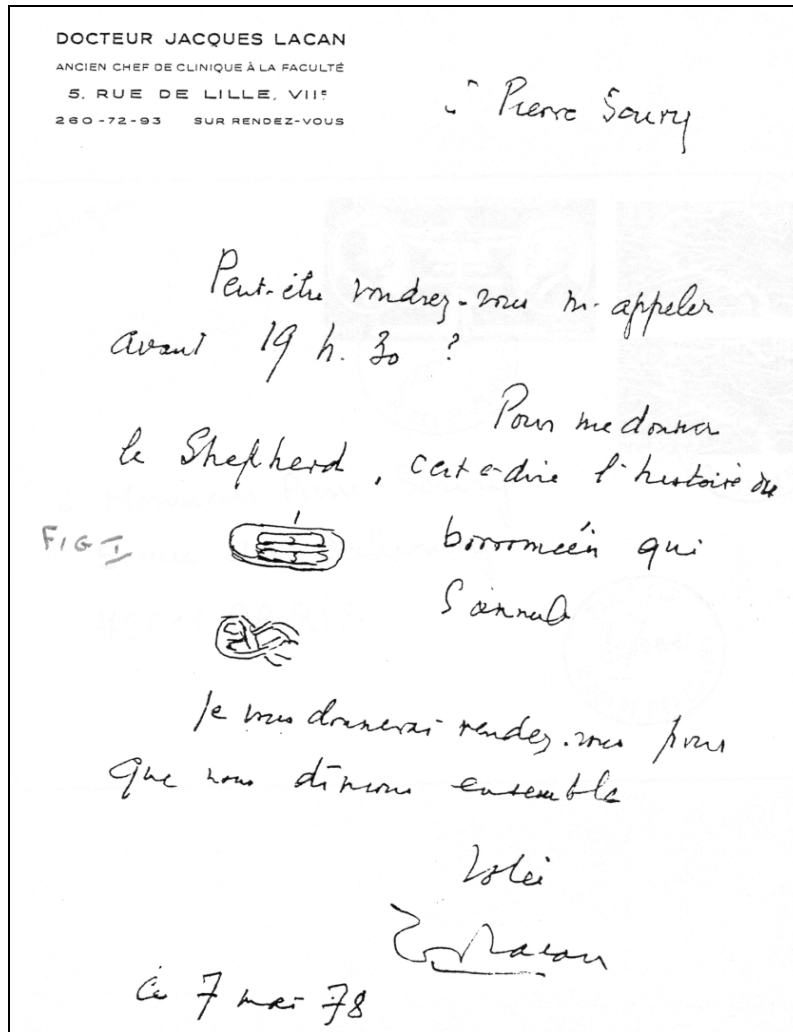 DOCTEUR JACQUES LACAN
ANCIEN CHEF DE CLINIQUE À LA FACULTÉ
5, RUE DE LILLE, VIIE
260-72-93 SUR RENDEZ-VOUS
à Pierre Soury
Peut-être voudrez-vous m'appeler
avant 19 h. 30 ?
Pour me donner
le Shepherd, c'est-à-dire l'histoire du
FIG I
borroméen qui
s'annule
Je vous donnerai rendez-vous pour
que nous dînions ensemble
Lacan
Ce 7 mai 78